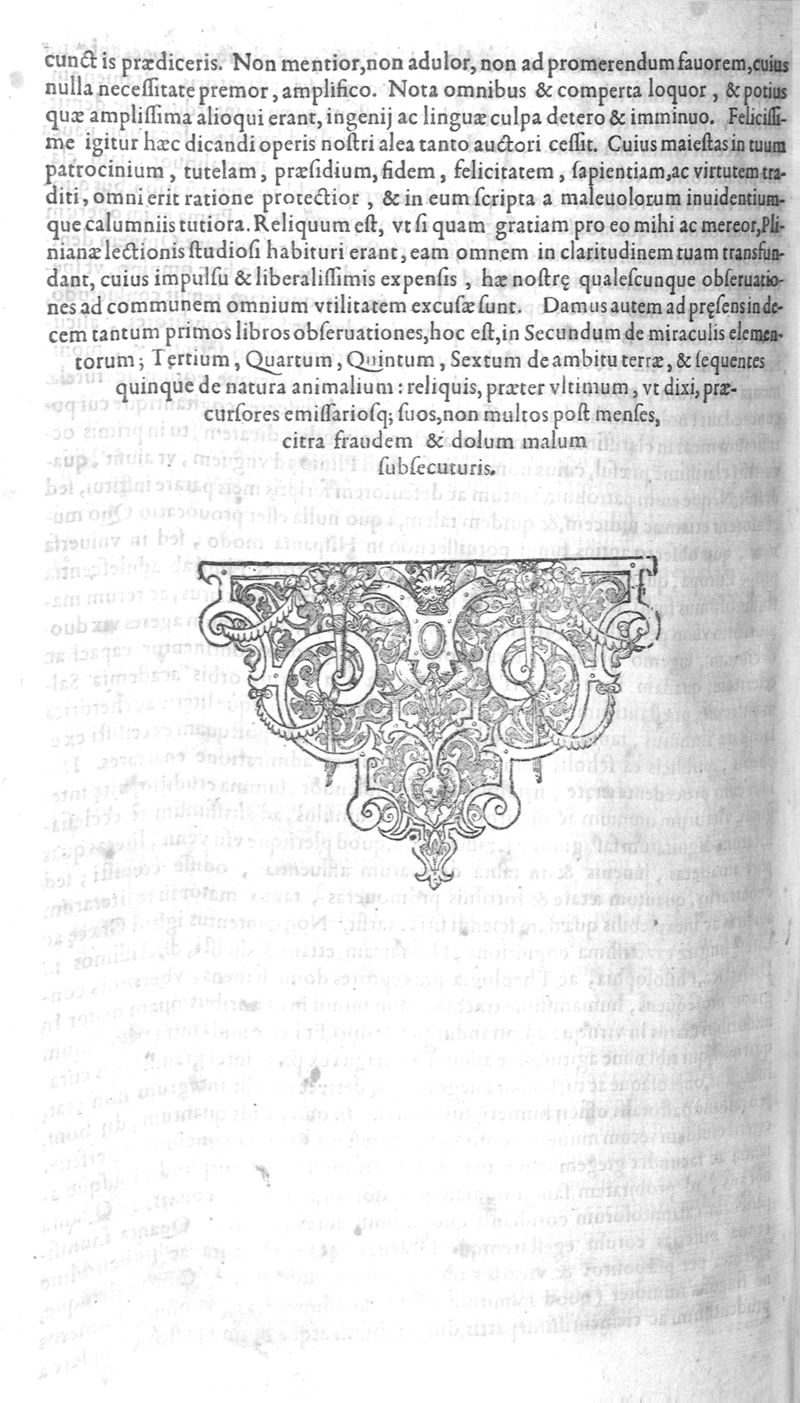 cunctis prædiceris. Non mentior, non adulor, non ad promerendum fauorem, cuius
nulla neceſſitate premor, amplifico. Nota omnibus & comperta loquor, & potius
quæ ampliſſima alioqui erant, ingenij ac linguæ culpa detero & imminuo. Feliciſſi-
me igitur hæc dicandi operis noſtri alea tanto auctori ceſſit. Cuius maieſtas in tuum
patrocinium, tutelam, præſidium, fidem, felicitatem, ſapientiam, ac virtutem tra-
diti, omni erit ratione protectior, & in eum ſcripta a maleuolorum inuidentium-
que calumniis tutiora. Reliquum eſt, vt ſi quam gratiam pro eo mihi ac mereor, Pli-
nianæ lectionis ſtudioſi habituri erant, eam omnem in claritudinem tuam transfun-
dant, cuius impulſu & liberaliſſimis expenſis, hæ noſtrę qualeſcunque obſeruatio-
nes ad communem omnium vtilitatem excuſæ ſunt. Damus autem ad pręſens in de-
cem tantum primos libros obſeruationes, hoc eſt, in Secundum de miraculis elemen-
torum; Tęrtium, Quartum, Quintum, Sextum de ambitu terræ, & ſequentes
quinque de natura animalium: reliquis, præter vltimum, vt dixi, præ-
curſores emiſſarioſq; ſuos, non multos poſt menſes,
citra fraudem & dolum malum
ſubſecuturis.